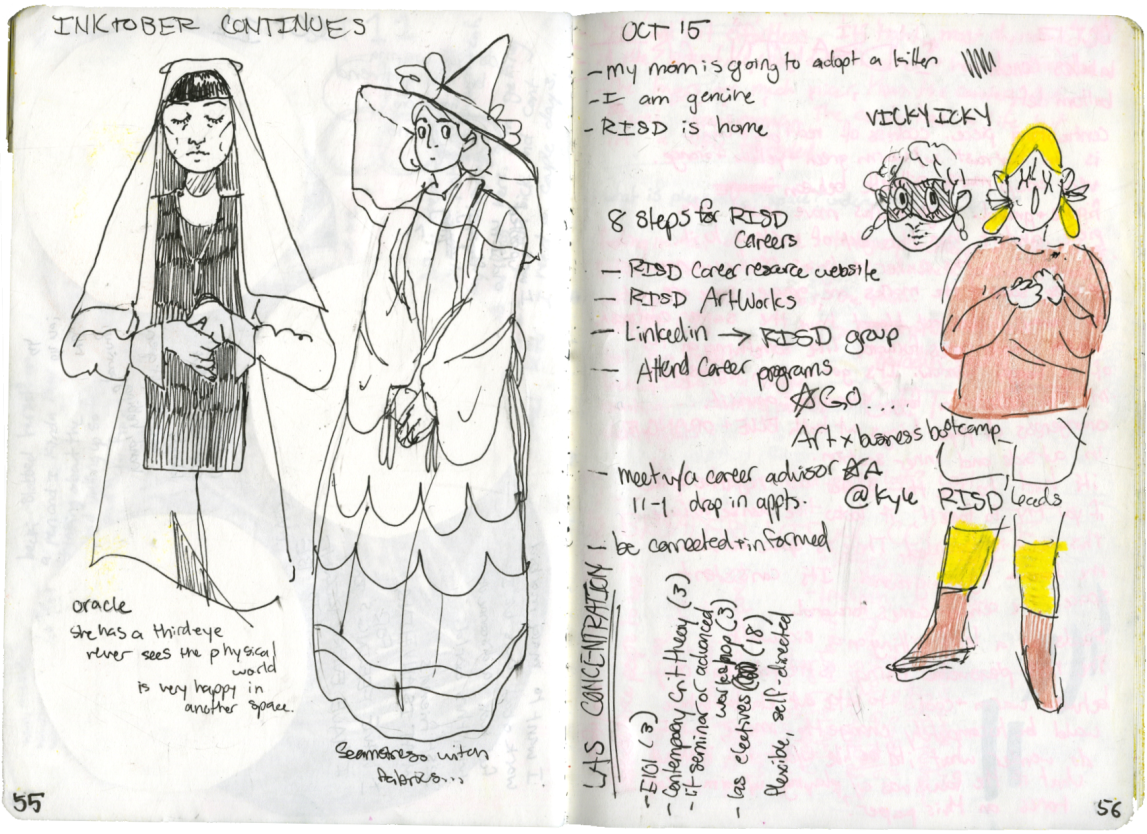 INKTOBER CONTINUES
oracle
she has a third eye
never sees the physical
world
is very happy in
another space.
Seamstress witch
fabrics...
55
OCT 15
- my mom is going to adopt a kitten
- I am genuine
- RISD is home
VICKY ICKY
8 steps for RISD
Careers
- RISD Career resource website
- RISD ArtWorks
- Linkedin → RISD group
- Attend Career programs
AGO...
Art x business bootcamp
- meet w/a career advisor
11-1 drop in appts.
@Kyle RISD leads
be connected + informed
LAS CONCENTRATION!
- E101 (3)
- Contemporary Crit theory (3)
- lit seminar or advanced
workshop (3)
- las electives (18)
flexible, self-directed
56